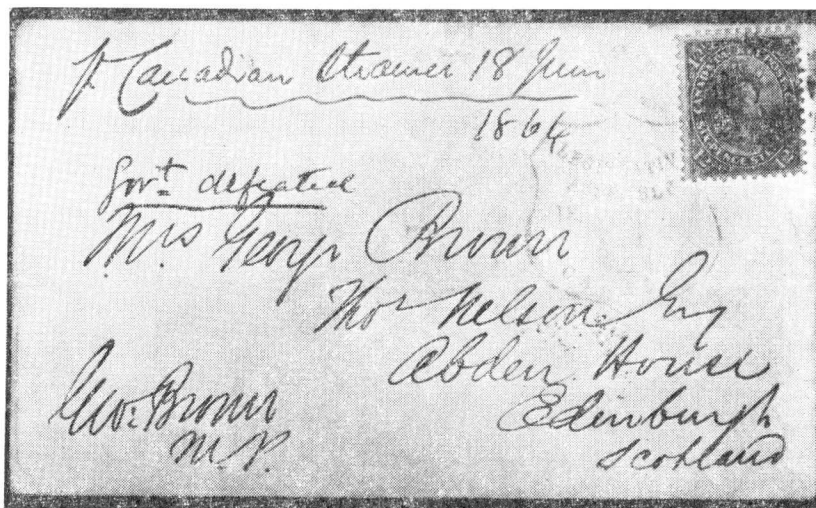 pr Canadian Steamer 18 June
1864
Govt defeated
Mrs George Brown
Thos Nelson Esq
Abden House
Edinburgh
Scotland
Geo. Brown
M.P.